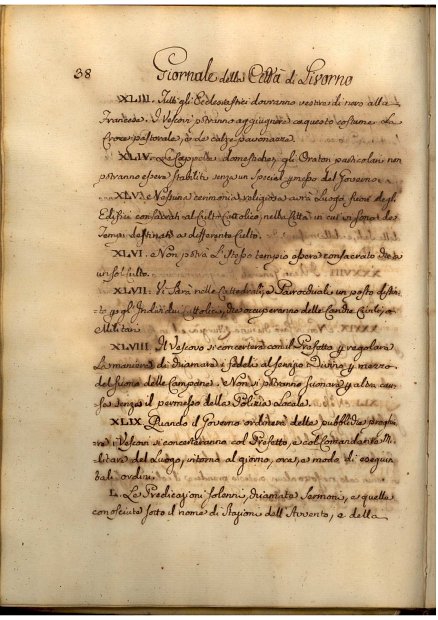 38 Giornale della Città di Livorno
XLIII. Tutti gli Ecclesiastici dovranno vestire di nero alla
Francese. I Vescovi potranno aggiugnere a questo costume La
Croce pastorale, e Le calze pavonazze.
XLIV. Le Cappelle domestiche, gli Oratori particolari non
potranno essere stabiliti senza un Special del Governo.
XLV. Nessuna ceremonia religiosa avrà Luogo fuori degl.
Edifizi consacrati al Culto Cattolico, nelle Città in cui vi sono de
Tempi destinati a differente Culto.
XLVI. Non potrà L'istesso tempio essere consacrato che a
un sol culto.
XLVII. Vi Sarà nelle Cattedrali, e Parrocchiali un posto
gl' Individui Cattolici, che occuperanno delle Cariche Civili, e
Militari
XLVIII. Il Vescovo si concerterà con il Prefetto regolare
La maniera di chiamare i fedeli al servizio Divino mezzo
del suono delle Campane. Non si potranno suonare altra
senza il permesso della Polizia Locale.
XLIX. Quando il Governo ordinerà delle pubbliche
i Vescovi si concerteranno col Prefetto, e col Comandante
del Luogo, intorno al giorno, ora, e modo di eseguir
tali ordini.
L. Le Predicazioni solenni, chiamate Sermoni, e quelle
conosciute sotto il nome di Stazioni dell'Avvento, e della